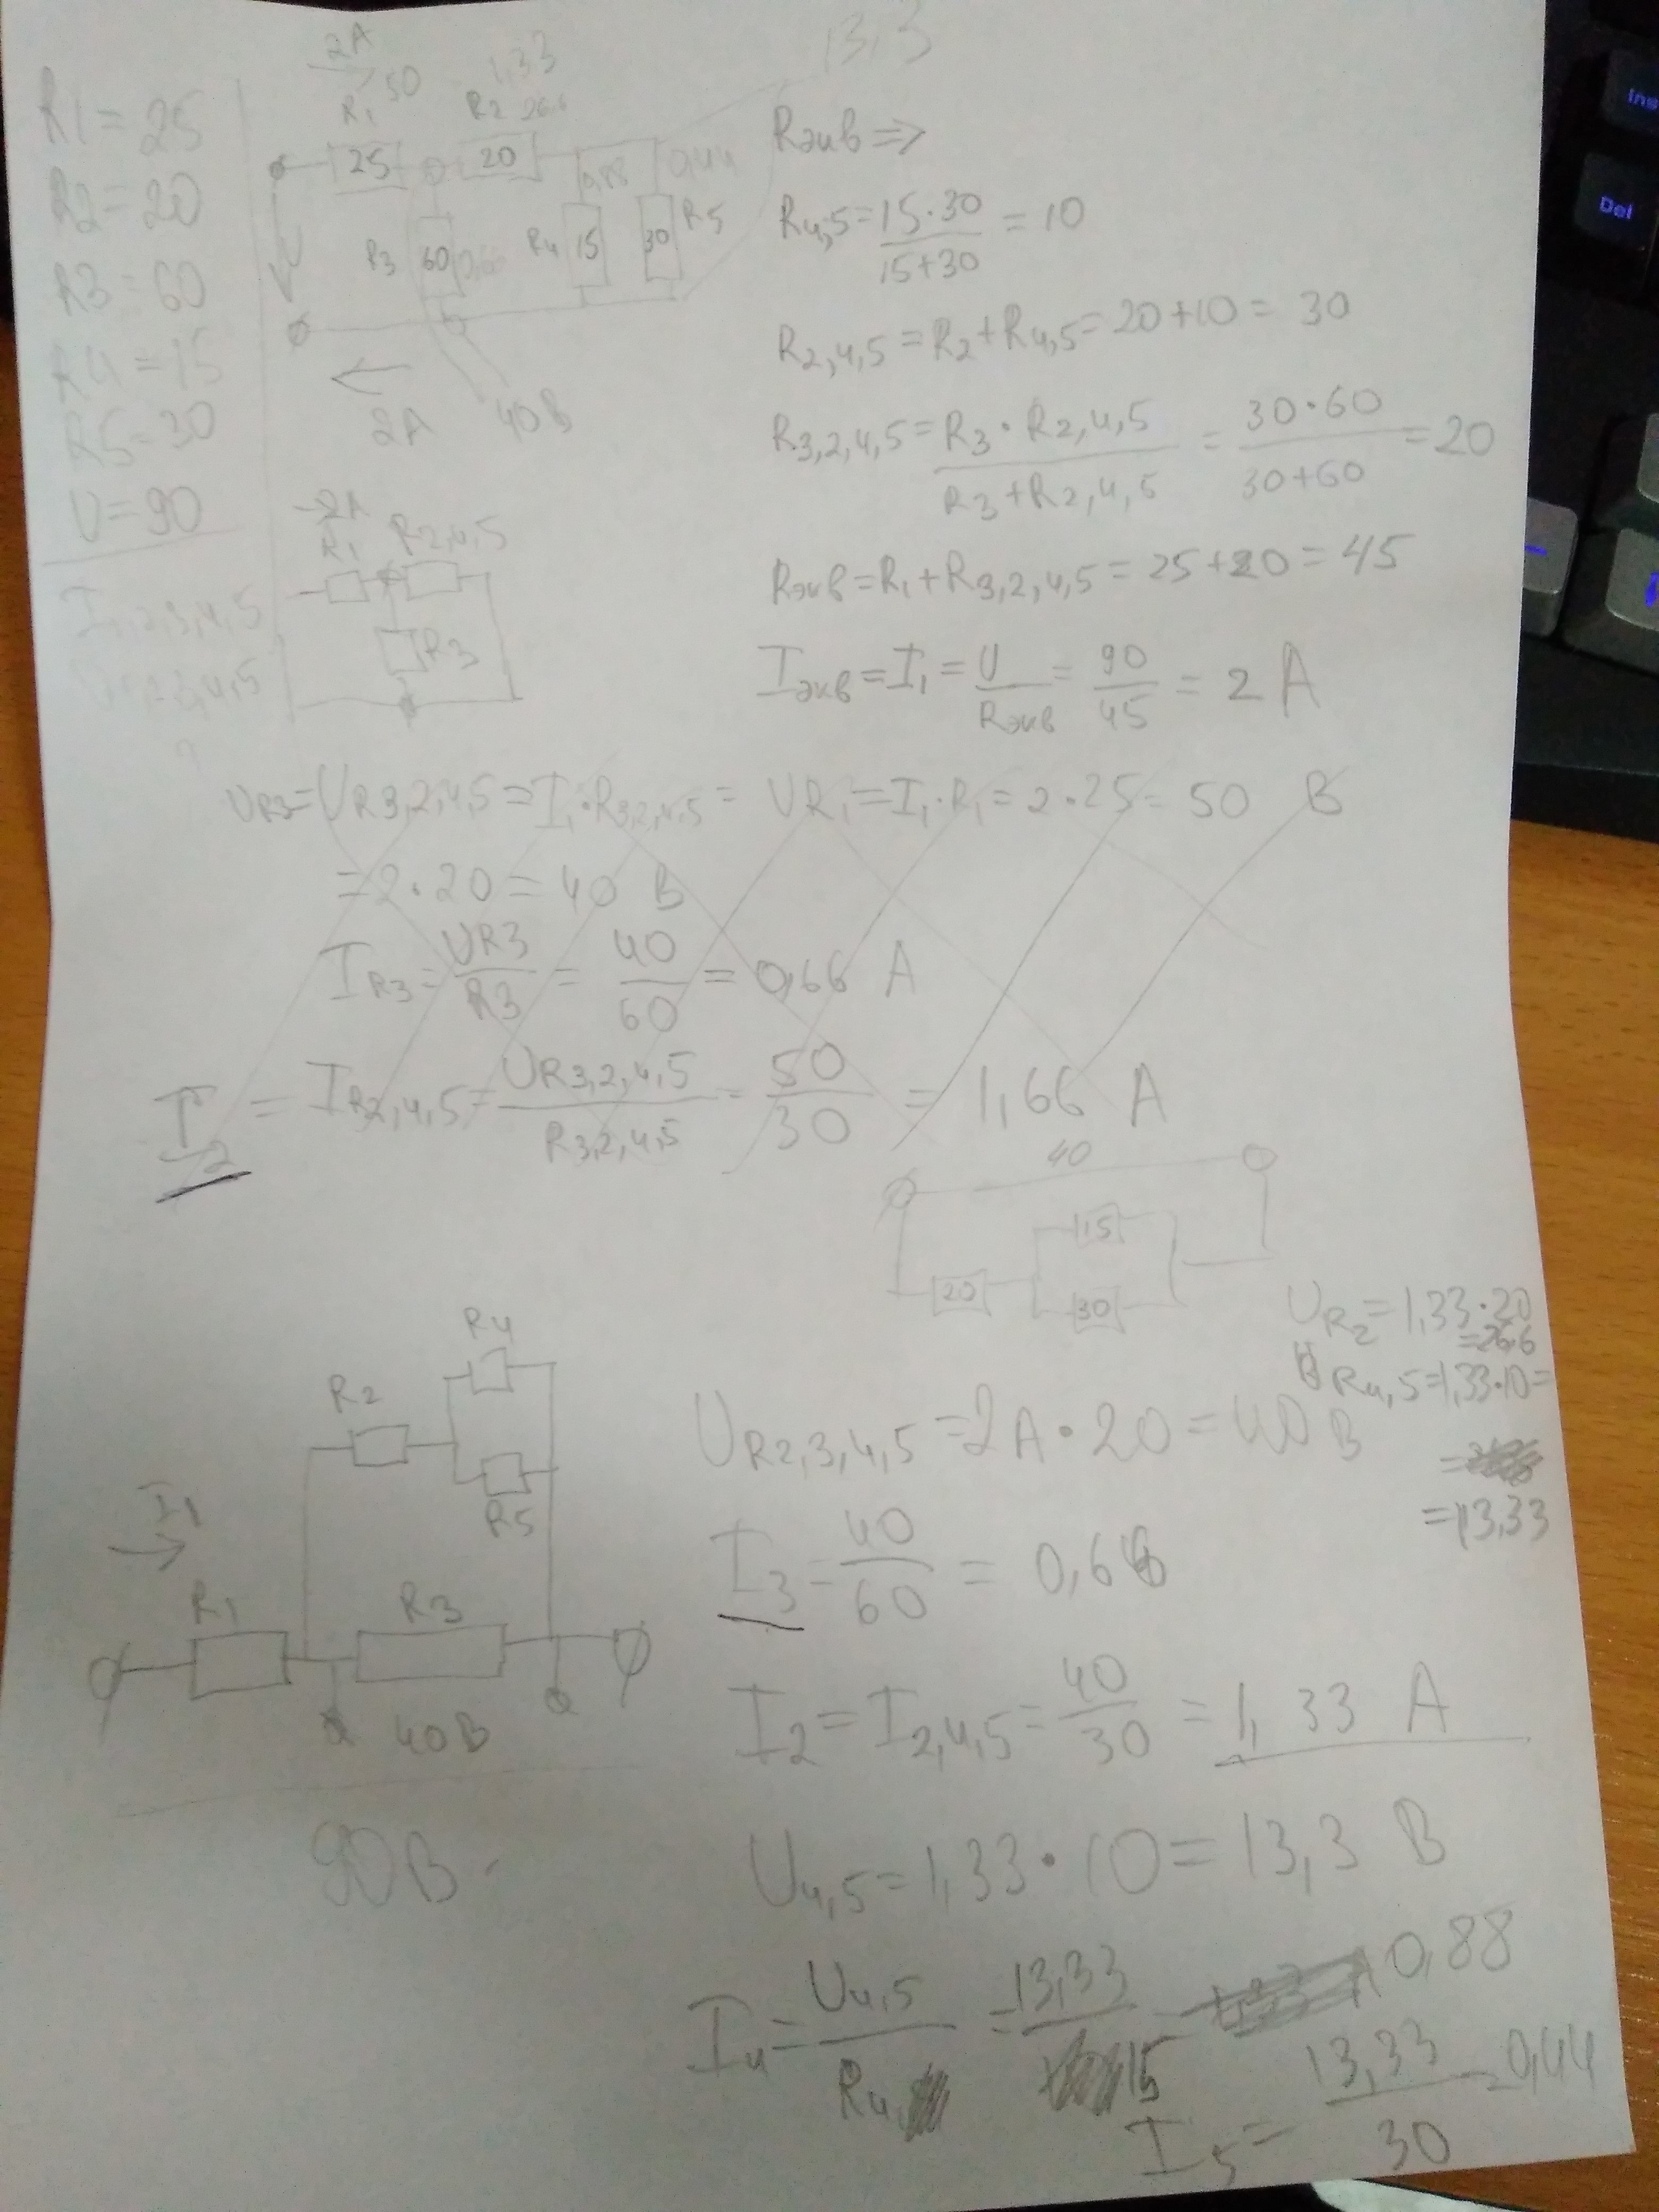 R1=25
R2=20
R3=60
R4=15
R5=30
U=90
I1,2,3,4,5
2A
50
R1
25
1,33
R2 26.6
20
13,3
U
R3
60
0,66
R4
15
0,88
30
R5
0,44
2A
40В
Rэкв =>
R4,5=15·30/15+30 = 10
R2,4,5=R2+R4,5=20+10=30
R3,2,4,5=R3·R2,4,5/R3+R2,4,5 = 30·60/30+60 =20
Rэкв=R1+R3,2,4,5=25+20=45
Iэкв=I1=U/Rэкв=90/45=2 A
2A
R1
R2,4,5
R3
UR3=UR3,2,4,5=I1·R3,2,4,5=
UR1=I1·R1=2·25=50 В
=2·20=40 В
IR3=UR3/R3=40/60=0,66 A
I2 = IR2,4,5=UR3,2,4,5/R3,2,4,5=50/30=1,66 A
40
15
20
30
UR2=1,33·20
=26.6
UR4,5=1,33·10=
=13,33
R4
R2
R5
I1
R1
R3
40В
90В
UR2,3,4,5=2A·20=40В
I3=40/60=0,66
I2=I2,4,5=40/30=1,33 A
U4,5=1,33·10=13,3 В
I4=U4,5/R4=13,33/15 0,88
I5=13,33/30=0,44
Ins
Del